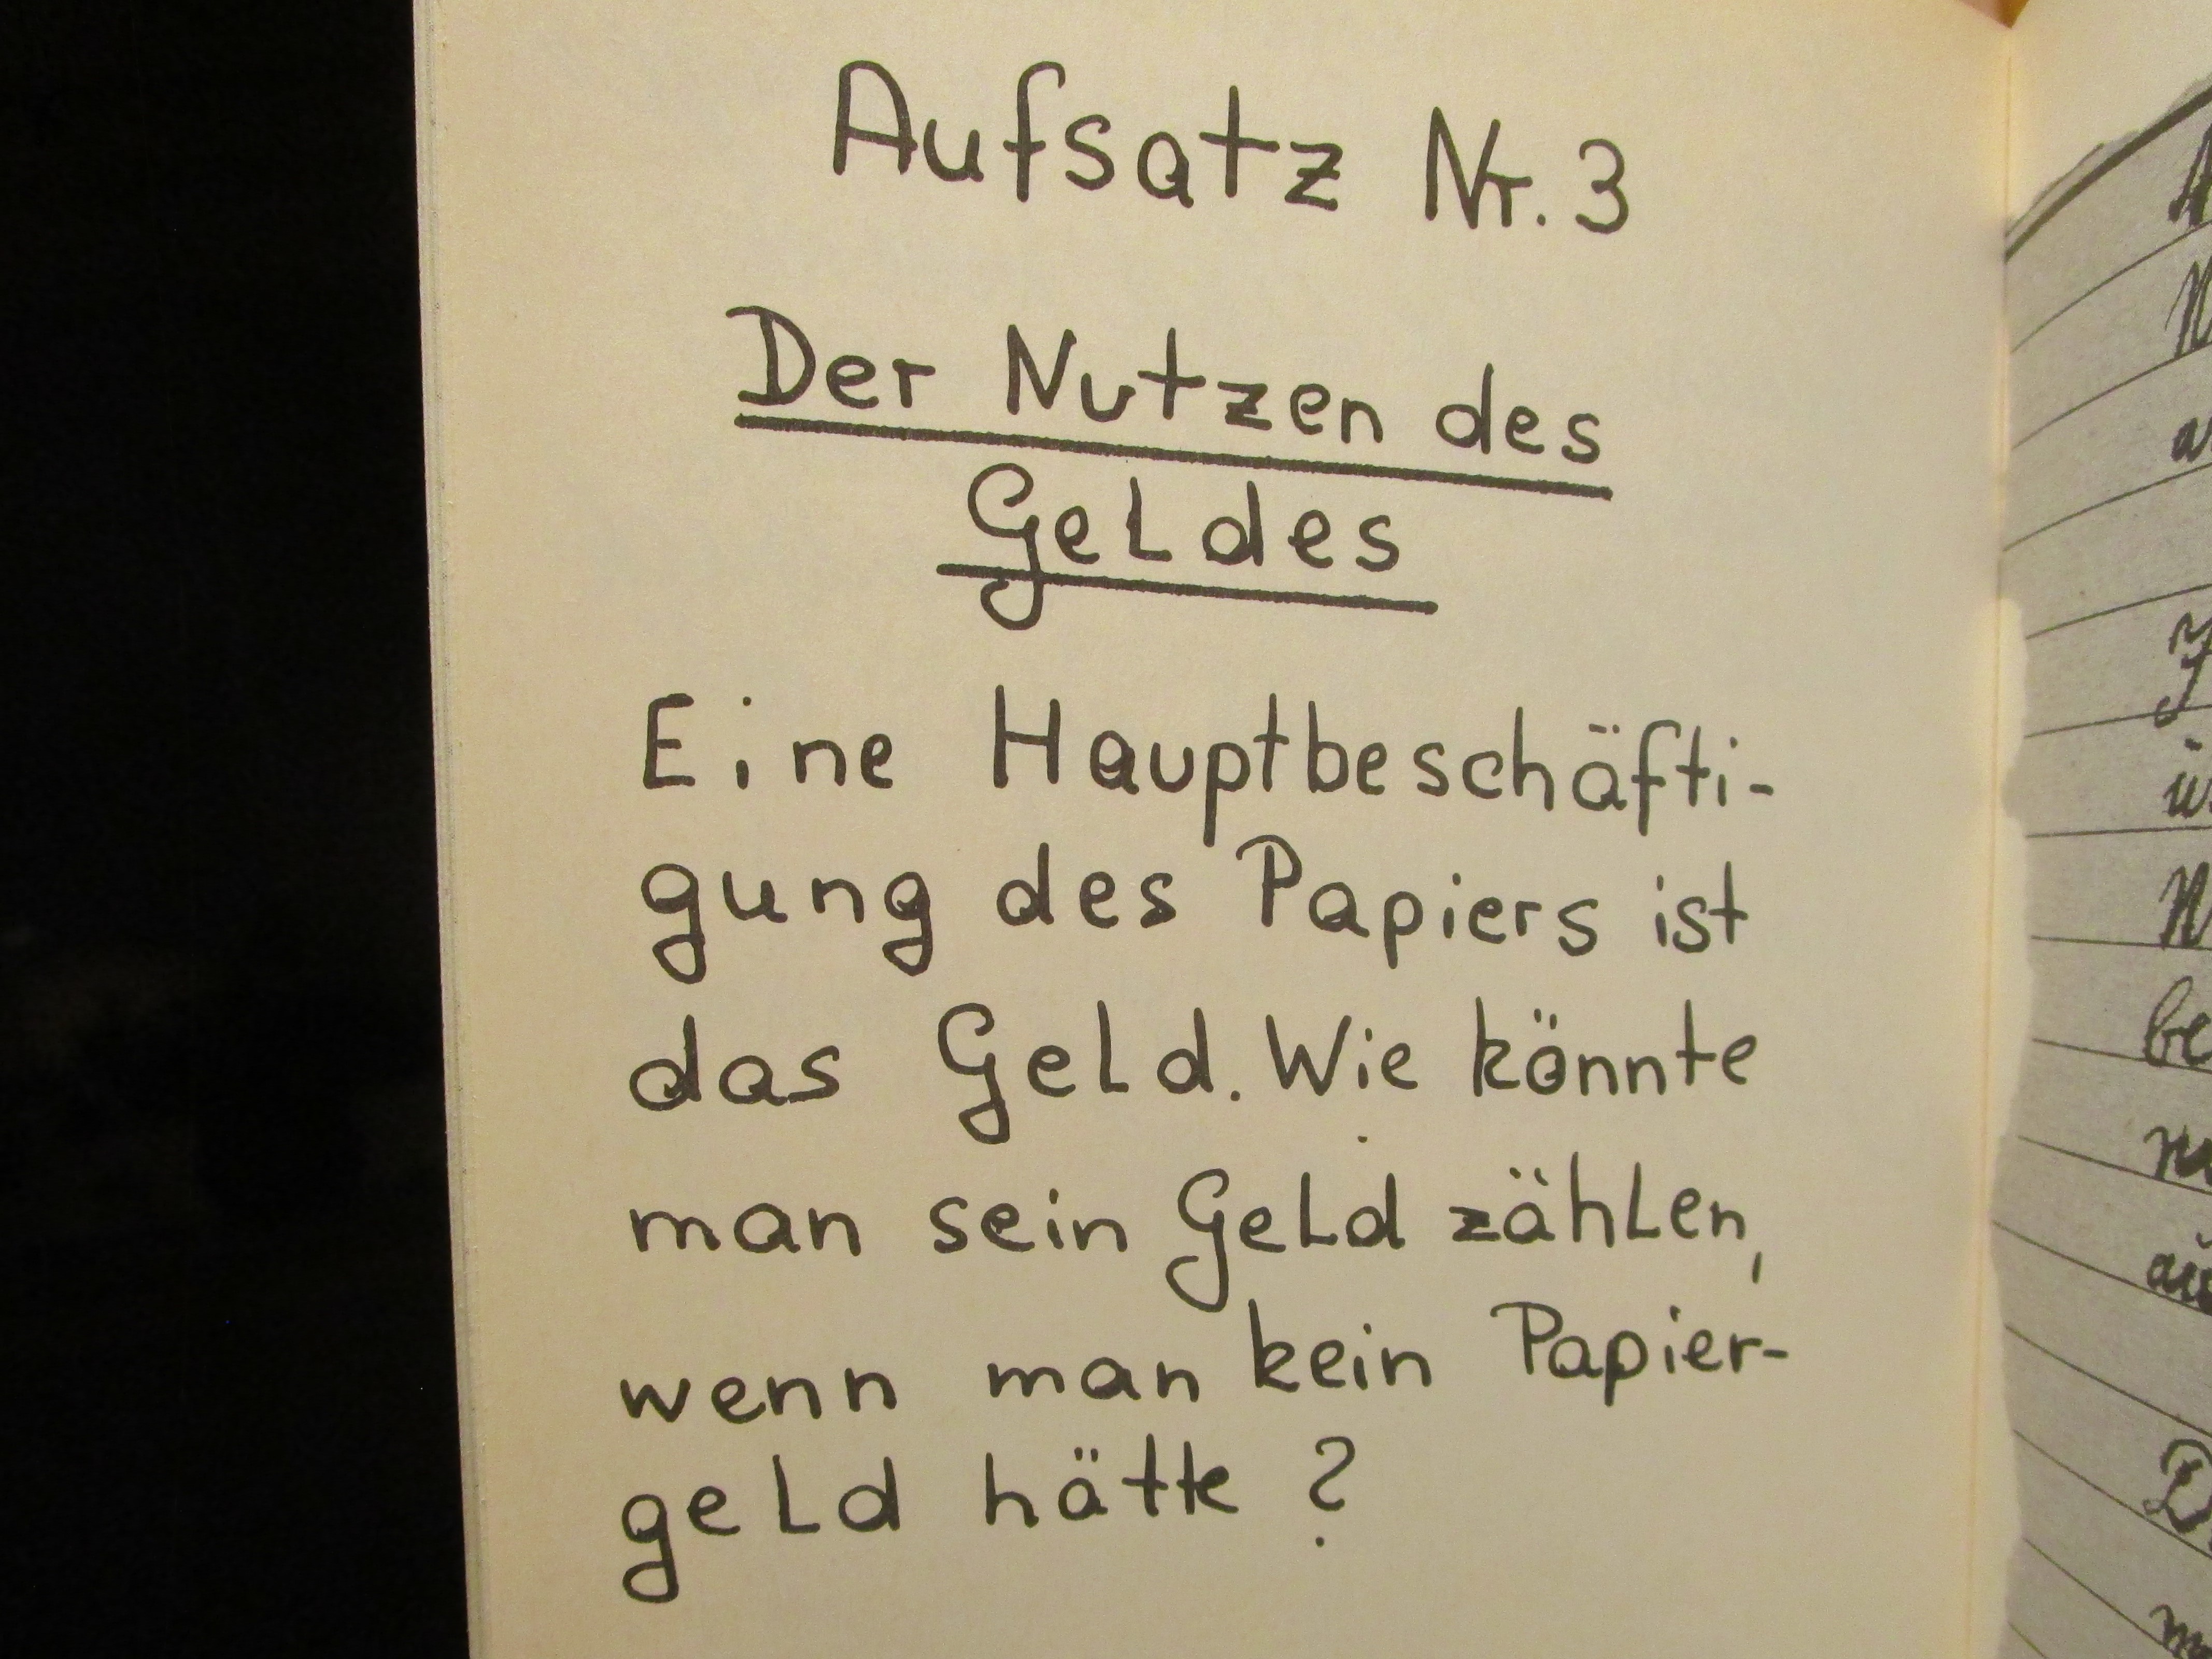 Aufsatz Nr. 3
Der Nutzen des
Geldes
Eine Hauptbeschäfti-
gung des Papiers ist
das Geld. Wie könnte
man sein Geld zählen,
wenn man kein Papier-
geld hätte ?